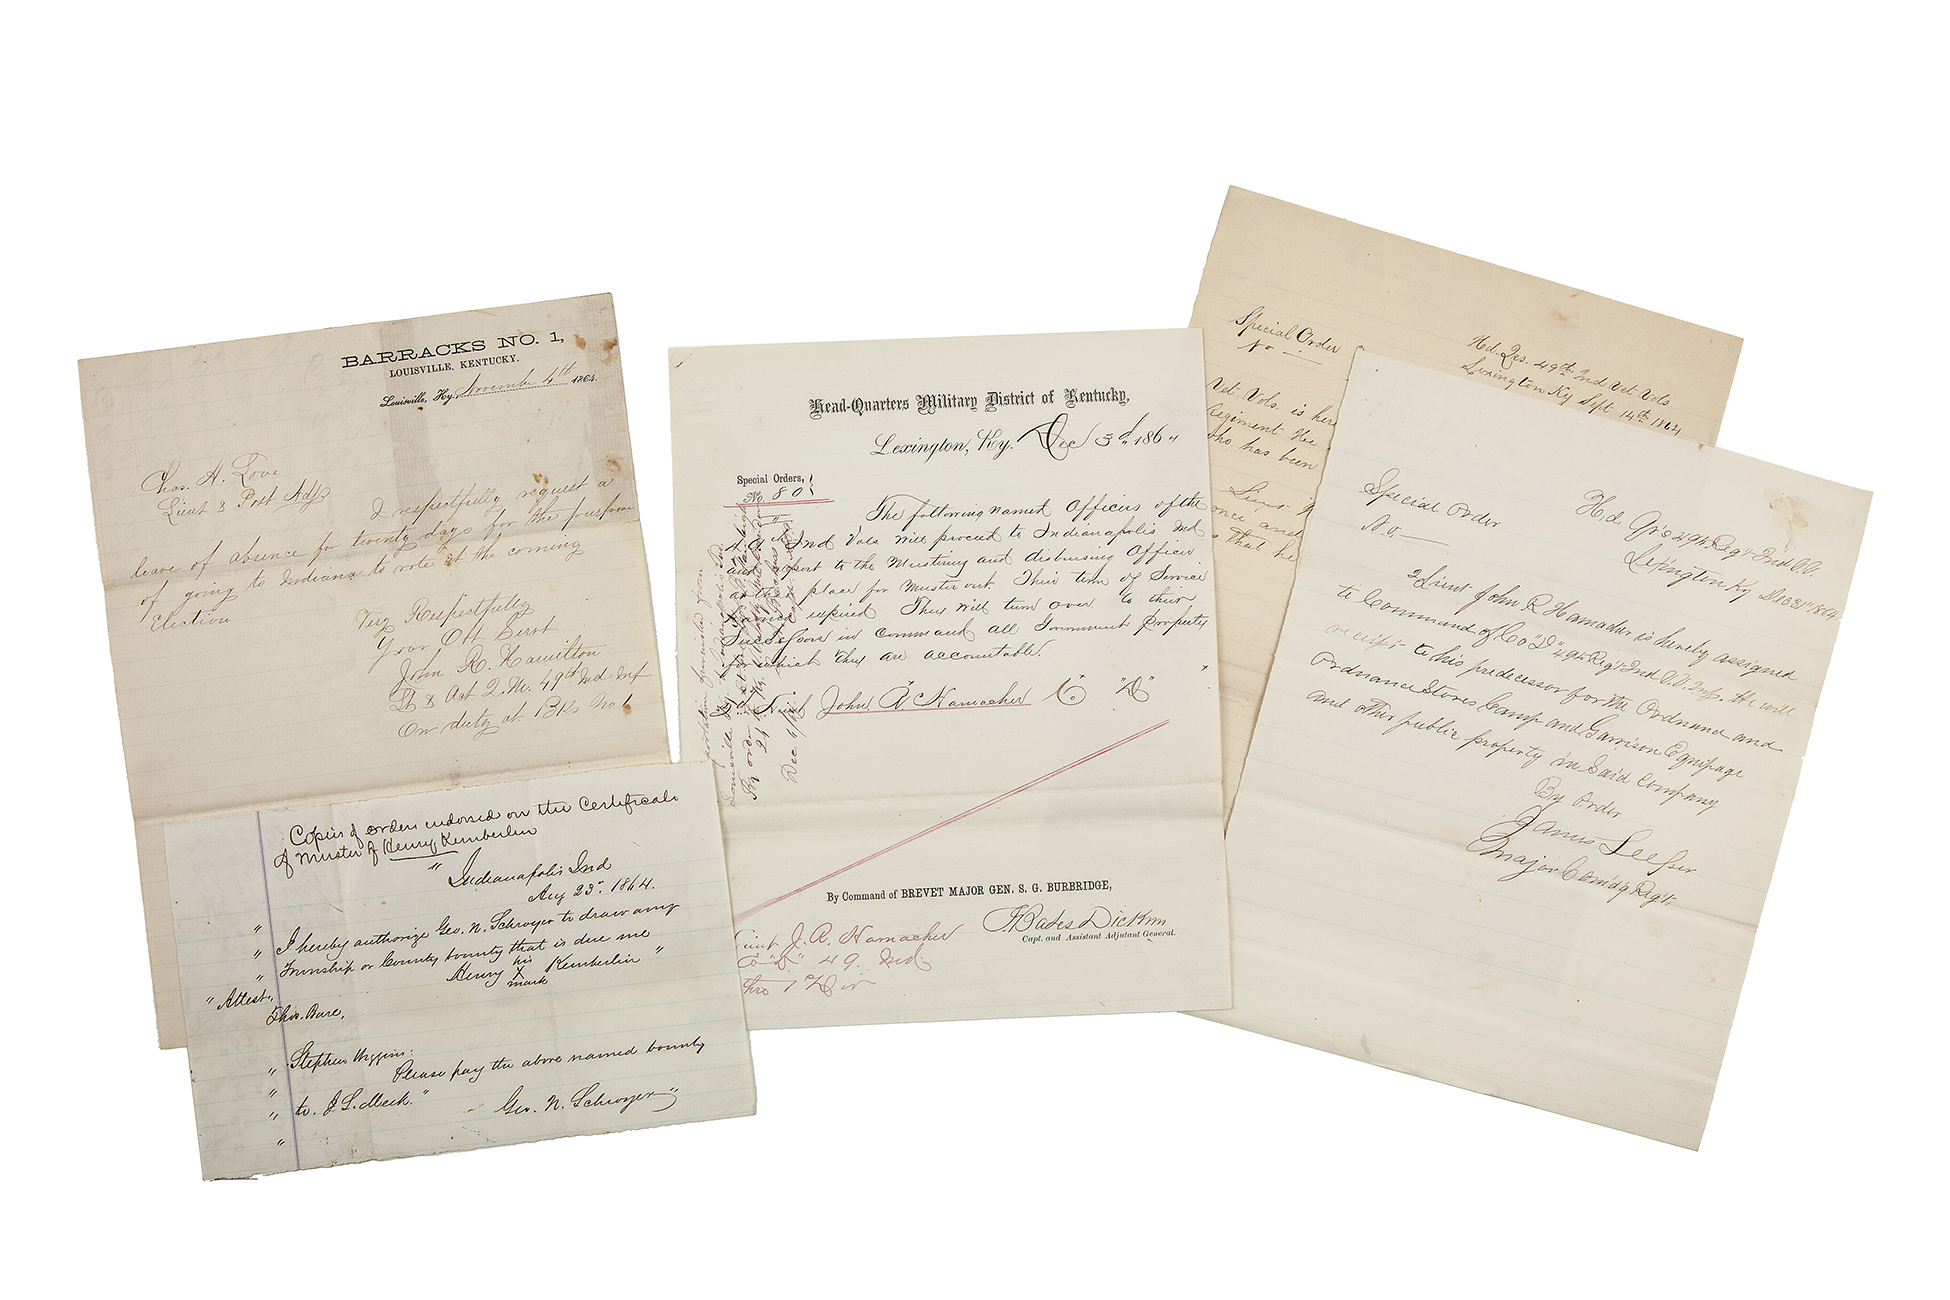 BARRACKS NO. 1,
LOUISVILLE, KENTUCKY.
Louisville, Ky. November 4th 1864.
Chas. H. Love
Lieut & Post Adjt
I respectfully request a
leave of absence for twenty days for the purpose
of going to Indiana to vote at the coming
Election
Very Respectfully
Your Obt Servt
John R. Hamilton
Lt & Act Q.M. 49th Ind Inf
On duty at Bks No 1
Copies of orders endorsed on the Certificate
of Muster of Henry Kemberlin
" Indianapolis Ind
Aug 23" 1864.
" I hereby authorize Geo. N. Schroyer to draw any
" Township or County bounty that is due me
" Henry his X mark Kemberlin "
" Attest,
Thos. Bare,
Stephen Wiggins:
" Please pay the above named bounty
" to. J L. Meek. "
" Geo. N. Schroyer "
"
Head-Quarters Military District of Kentucky,
Lexington, Ky. Dec 3d 1864
Special Orders,
No. 80
The following named Officers of the
49th Ind Vols will proceed to Indianapolis Ind
and report to the Mustering and disbursing Officer
at that place for Muster out. Their term of Service
having expired They will turn over to their
Successors in command all Government property
for which they are accountable.
Lieut John R Hamacher Co "D"
By Command of BREVET MAJOR GEN. S. G. BURBRIDGE,
J Bates Dickson
Capt. and Assistant Adjutant General.
Lieut J. R. Hamacher
Co "D" 49. Ind.
thro 1st Div
transportation furnished from
Louisville Ky. to Indianapolis Ind.
Dec 4/64
Special Order
No —
Hd. Qrs. 49th Ind Vet Vols
Lexington Ky Sept 14th 1864
Vet Vols. is here
Regiment He
who has been
once and
that he
Special Order
No, —
Hd. Qrs 49th Regt Ind V.V.
Lexington Ky Dec 21st 1864
2 Lieut John R Hamacher is hereby assigned
to Command of Co "D" 49th Regt Ind V.V. Inf. He will
receipt to his predecessor for the Ordnance and
Ordnance Stores Camp and Garrison Equipage
and other public property in Said Company
By Order
James Leeper
Major Com'd'g Regt.